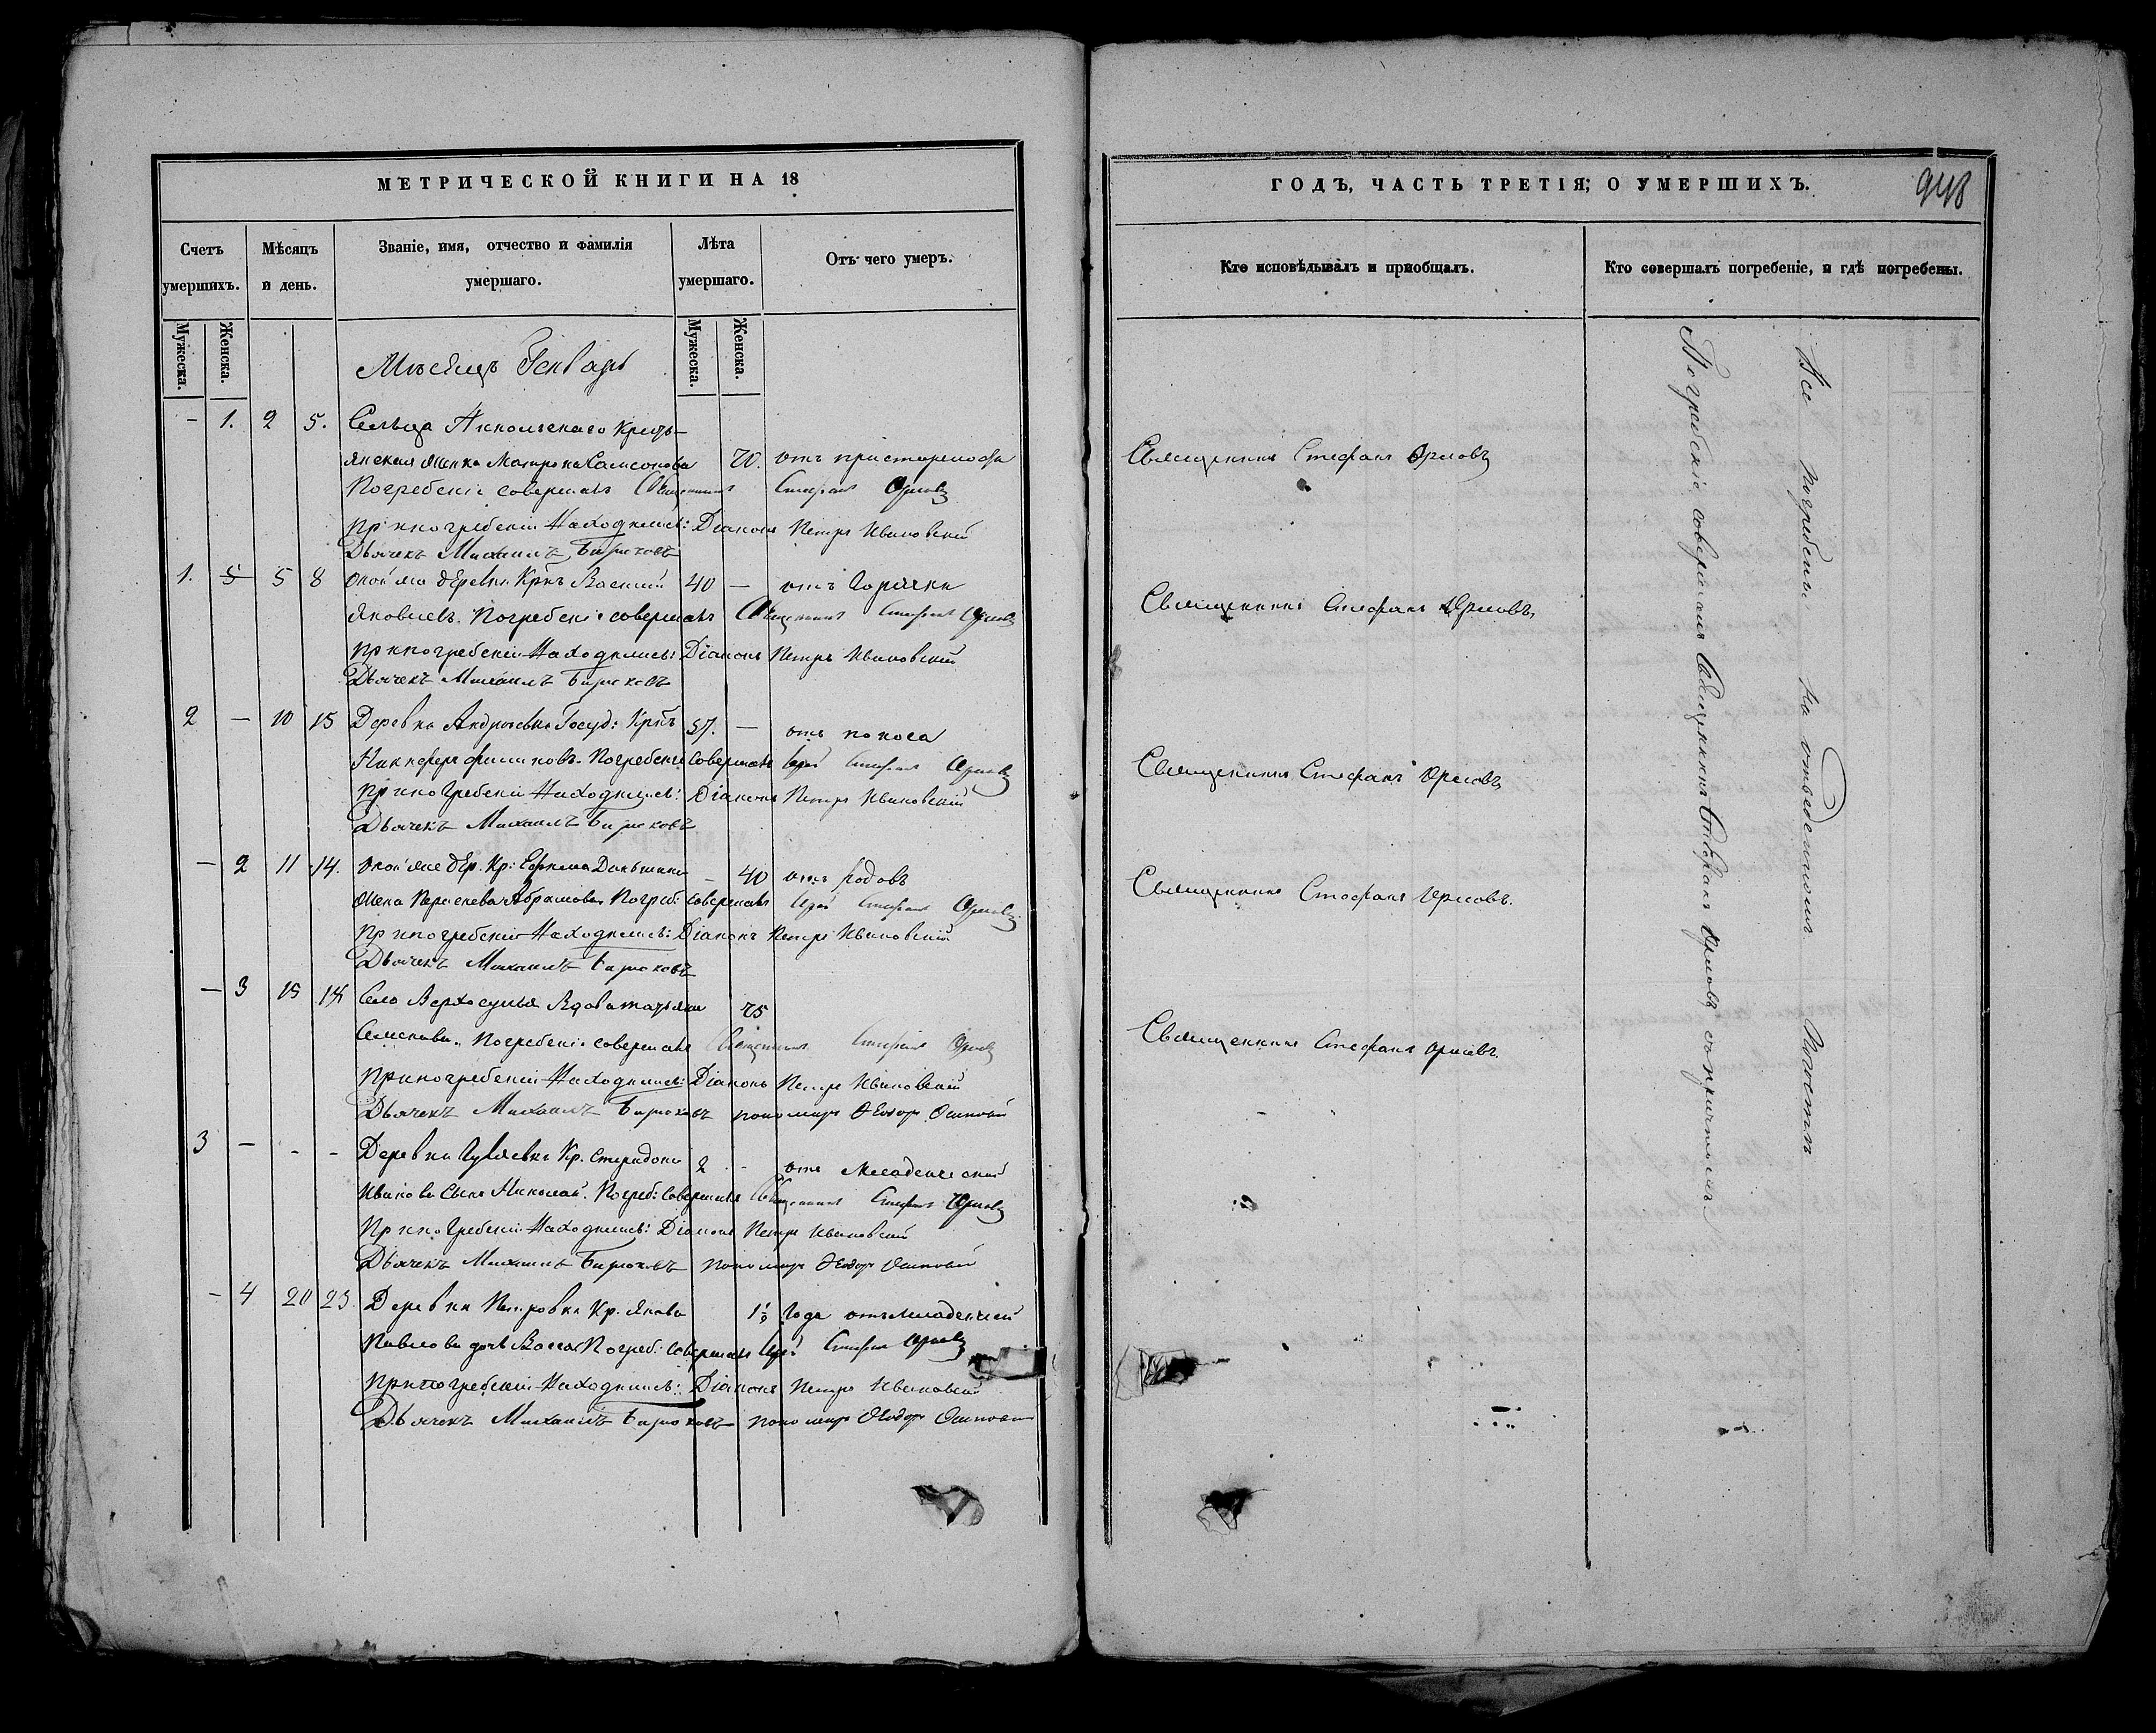 МЕТРИЧЕСКОЙ КНИГИ НА 18
Счетъ умершихъ.
Мѣсяцъ и день.
Званіе, имя, отчество и фамилія умершаго.
Лѣта умершаго.
Отъ чего умеръ.
Мужеска. Женска.
Мужеска. Женска.
Мѣсяцъ Генварь
— 1. 2 5. Сельца Никольскаго Кресть-
янская жена Матрона Самсонова 70. отъ престарелости
Погребеніе совершалъ Священникъ Стефанъ Орловъ
При погребеніи находились: Діаконъ Петръ Ивановскій
Дьячекъ Михаилъ Бирюковъ
1. 5 5 8 Той же деревни Крнъ Василій 40 — отъ горячки
Яковлевъ. Погребеніе совершалъ Священникъ Стефанъ Орловъ
При погребеніи находились: Діаконъ Петръ Ивановскій
Дьячекъ Михаилъ Бирюковъ
2 — 10 15 Деревни Андреевки Госуд: Крнъ 57. — отъ поноса
Никифоръ Филиповъ. Погребеніе совершалъ Іерей Стефанъ Орловъ
При погребеніи находились: Діаконъ Петръ Ивановскій
Дьячекъ Михаилъ Бирюковъ
— 2 11 14. Той же дер. Кр: Ефима — 40 отъ родовъ
жена Параскева Абрамова Погреб: совершалъ Іерей Стефанъ Орловъ
При погребеніи находились: Діаконъ Петръ Ивановскій
Дьячекъ Михаилъ Бирюковъ
— 3 15 Село Верхосунья Вдова 75
Погребеніе совершалъ Священникъ Стефанъ Орловъ
При погребеніи находились: Діаконъ Петръ Ивановскій
Дьячекъ Михаилъ Бирюковъ пономарь Ѳеодоръ
3 — - - Деревни Кр. Спиридона 2 - отъ младенческой
Иванова сынъ Николай. Погреб: совершалъ Священникъ Стефанъ Орловъ
При погребеніи находились: Діаконъ Петръ Ивановскій
Дьячекъ Михаилъ Бирюковъ пономарь Ѳеодоръ
- 4 20 23. Деревни Петровки Кр. Якова года отъ младенчей
Павлова дочь Погреб: совершалъ Іерей Стефанъ Орловъ
При погребеніи находились: Діаконъ Петръ Ивановскій
Дьячекъ Михаилъ Бирюковъ пономарь Ѳеодоръ
ГОДЪ, ЧАСТЬ ТРЕТІЯ; О УМЕРШИХЪ.
948
Кто исповѣдывалъ и пріобщалъ.
Кто совершалъ погребеніе, и гдѣ погребены.
Священникъ Стефанъ Орловъ
Священникъ Стефанъ Орловъ.
Священникъ Стефанъ Орловъ
Священникъ Стефанъ Орловъ.
Священникъ Стефанъ Орловъ.
Погребеніе совершалъ Священникъ Стефанъ Орловъ съ причтомъ
Все погребены на отведенномъ погостѣ